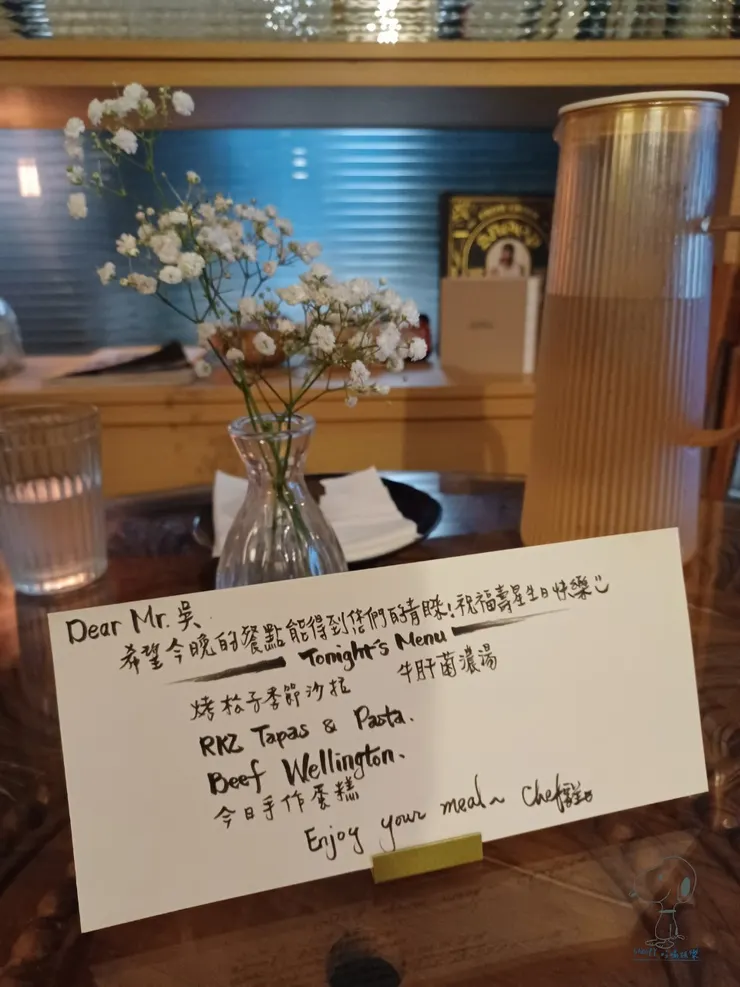 Dear Mr. 吳
希望今晚的餐點能得到您們的青睞！祝福壽星生日快樂
Tonight's Menu
烤松子季節沙拉 牛肝菌濃湯
RKZ Tapas & Pasta.
Beef Wellington.
今日手作蛋糕
Enjoy your meal~ Chef